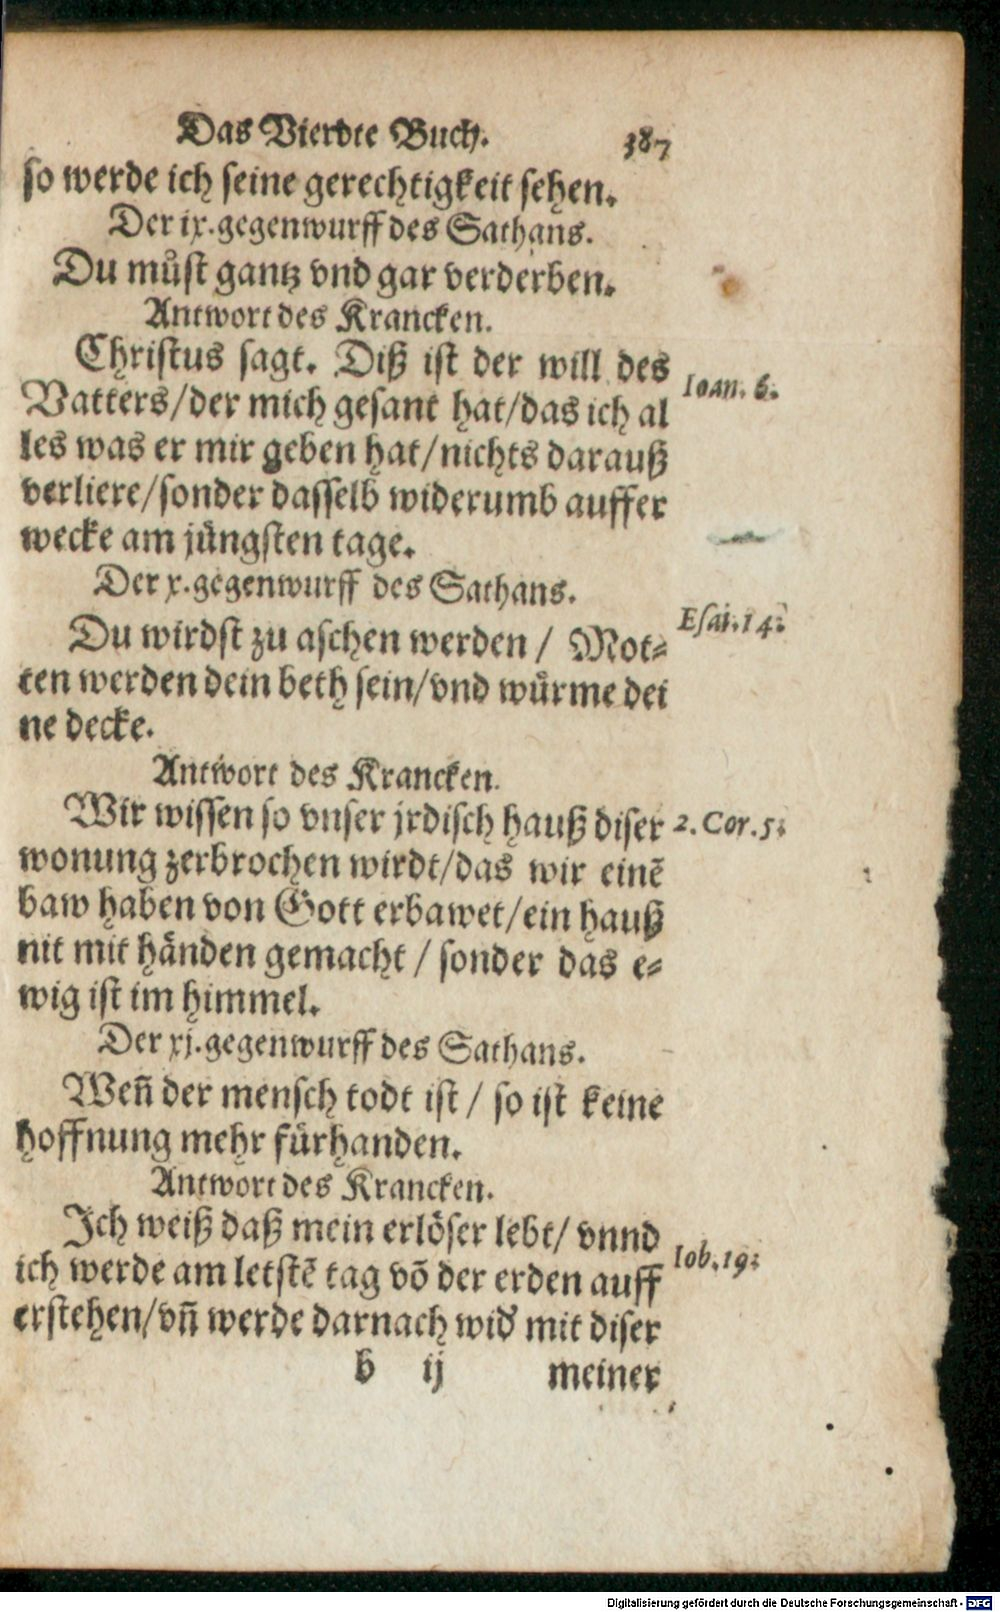 Das Vierdte Buch. 387
so werde ich seine gerechtigkeit sehen.
Der ix. gegenwurff des Sathans.
Du můst gantz vnd gar verderben.
Antwort des Krancken.
Christus sagt. Diß ist der will des
Ioan. 6.
Vatters/der mich gesant hat/das ich al
les was er mir geben hat/nichts darauß
verliere/sonder dasselb widerumb auffer
wecke am jüngsten tage.
Der x. gegenwurff des Sathans.
Esai. 14.
Du wirdst zu aschen werden / Mot⸗
ten werden dein beth sein/vnd würme dei
ne decke.
Antwort des Krancken.
Wir wissen so vnser jrdisch hauß diser
2. Cor. 5.
wonung zerbrochen wirdt/das wir einē
baw haben von Gott erbawet/ein hauß
nit mit händen gemacht / sonder das e⸗
wig ist im himmel.
Der xj. gegenwurff des Sathans.
Weñ der mensch todt ist / so ist keine
hoffnung mehr fürhanden.
Antwort des Krancken.
Ich weiß daß mein erlöser lebt/ vnnd
Iob. 19.
ich werde am letstē tag võ der erden auff
erstehen/vñ werde darnach wid' mit diser
b ij meiner
Digitalisierung gefördert durch die Deutsche Forschungsgemeinschaft - DFG